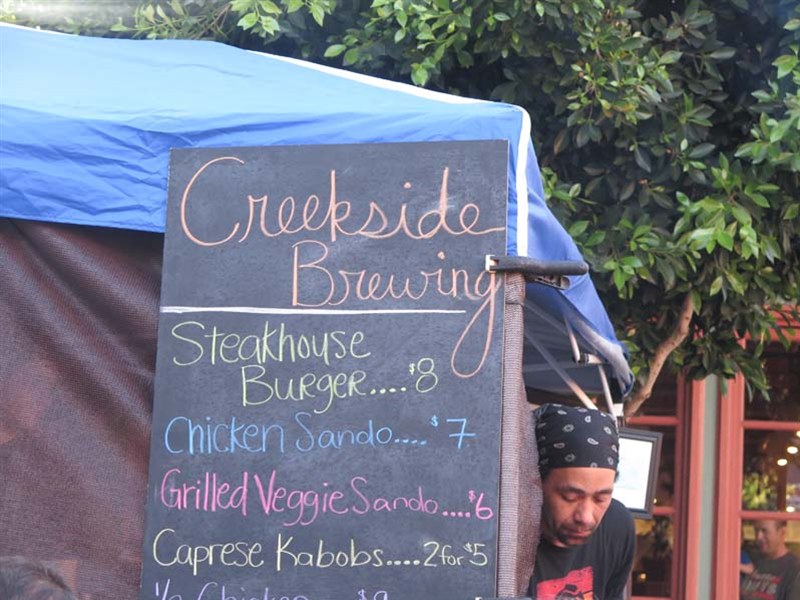 Creekside
Brewing
Steakhouse
Burger....$8
Chicken Sando....$7
Grilled Veggie Sando....$6
Caprese Kabobs....2 for $5
1/2 Chicken $9